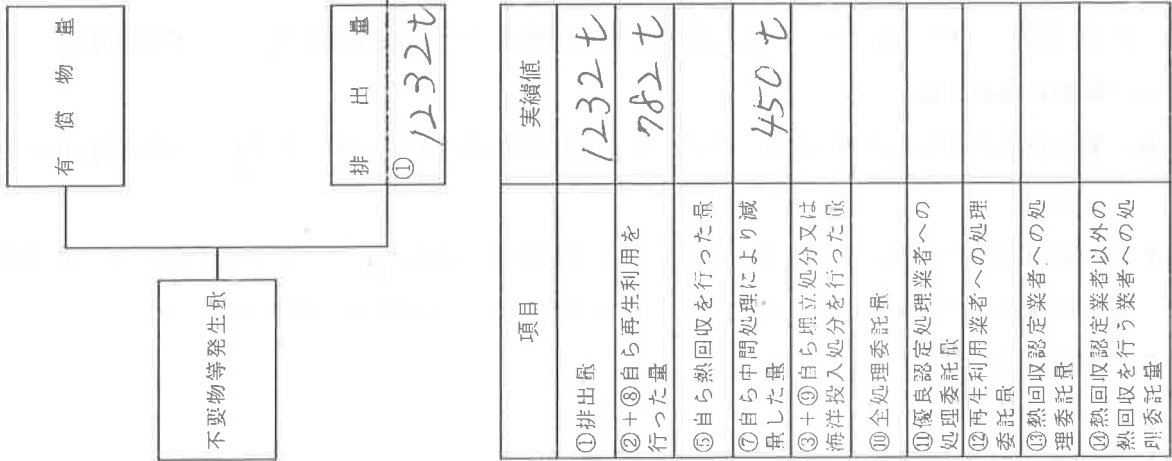 有償物量
不要物等発生量
排出量
① 1232t
項目 実績値
①排出量 1232 t
②+⑧自ら再生利用を
行った量 782 t
⑤自ら熱回収を行った量
⑦自ら中間処理により減
量した量 450 t
③+⑨自ら埋立処分又は
海洋投入処分を行った量
⑩全処理委託量
⑪優良認定処理業者への
処理委託量
⑫再生利用業者への処理
委託量
⑬熱回収認定業者への処
理委託量
⑭熱回収認定業者以外の
熱回収を行う業者への処
理委託量